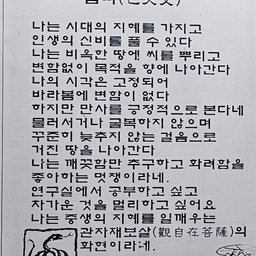 나는 시대의 지혜를 가지고
인생의 신비를 풀 수 있다
나는 비옥한 땅에 씨를 뿌리고
변함없이 목적을 향에 나아간다
나의 시각은 고정되어
바라봄에 변함이 없다
하지만 만사를 긍정적으로 본다네
물러서거나 굴복하지 않으며
꾸준히 늦추지 않는 걸음으로
거친 땅을 나아간다
나는 깨끗함만 추구하고 화려함을
좋아하는 멋쟁이라네.
연구실에서 공부하고 싶고
차가운 것을 멀리하고 싶어요
나는 중생의 지혜를 일깨우는
관자재보살(觀自在菩薩)의
화현이라네.